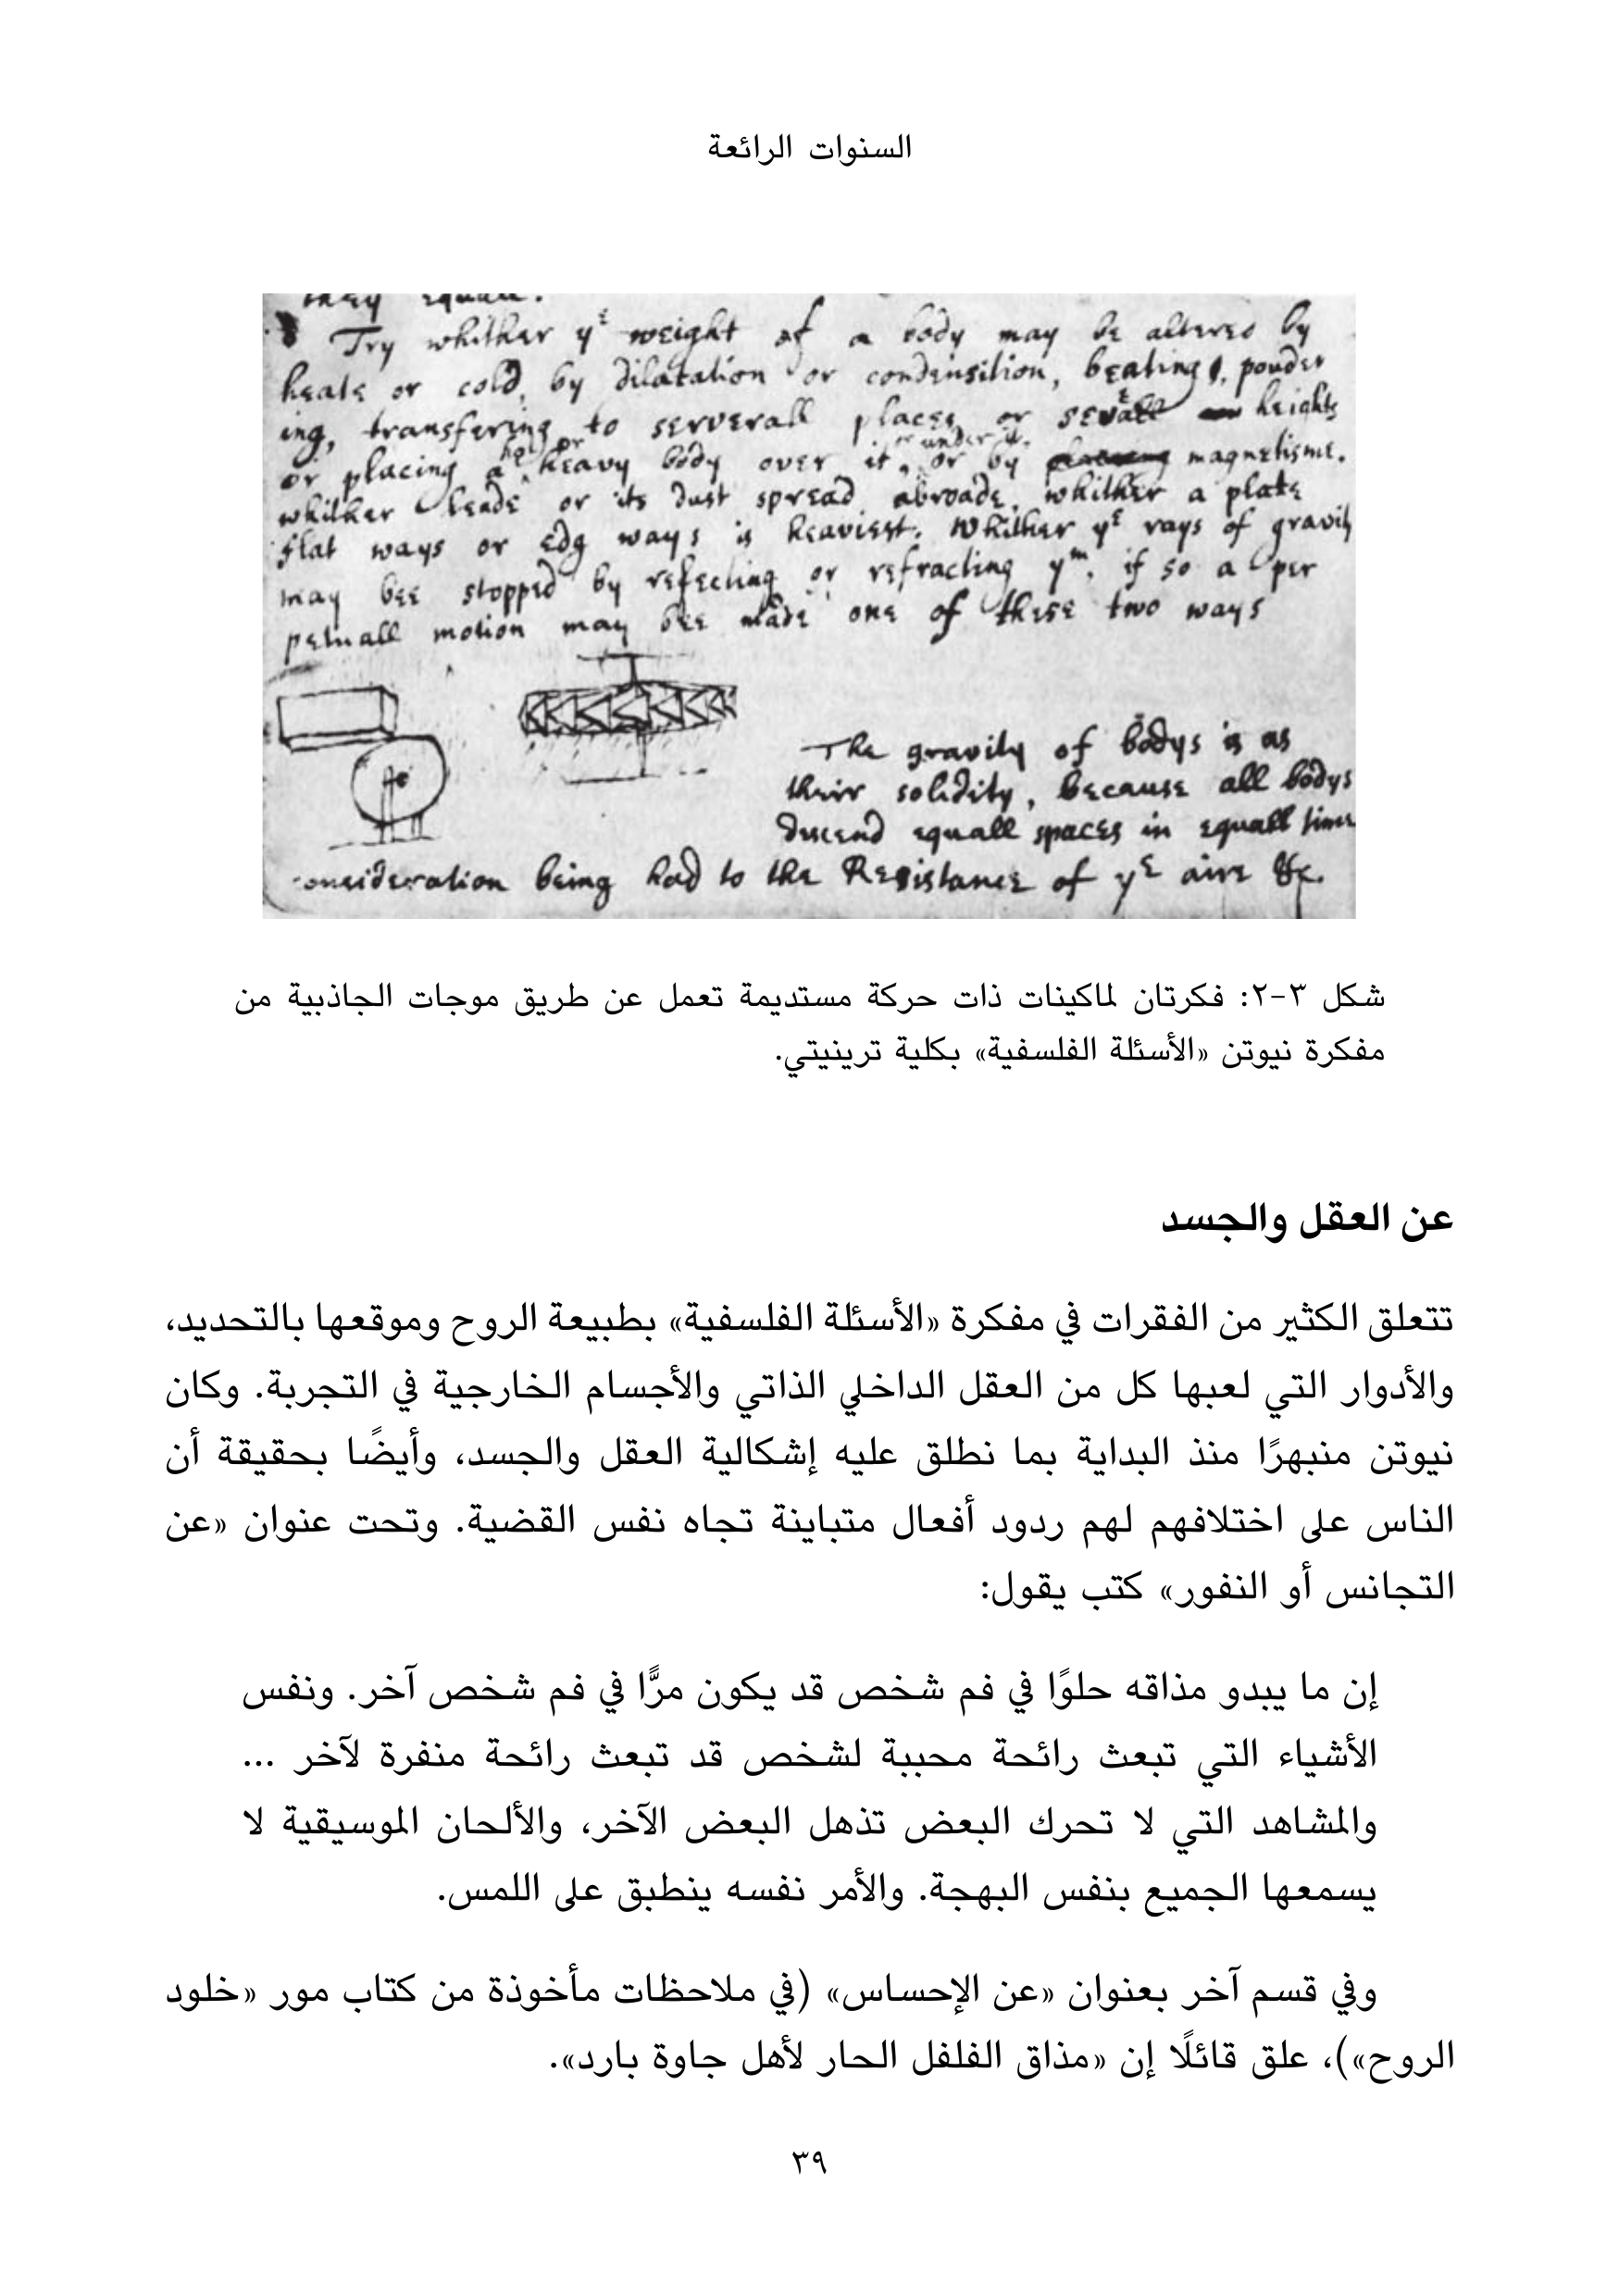 السنوات الرائعة
they equall.
Try whither yᵉ weight of a body may be altered by
heate or cold, by dilatation or condensition, beating, pouder
ing, transfering to serverall places or sevᵉall heights
or placing a hot or heavy body over it, or under it, or by magnetisme.
whither leade or its dust spread abroade, whither a plate
flat ways or edg ways is heaviest. Whither yᵉ rays of gravity
may bee stopped by reflecting or refracting yᵐ, if so a per
petuall motion may bee made one of these two ways
The gravity of bodys is as
their solidity, because all bodys
descend equall spaces in equall times
consideration being had to the Resistance of yᵉ aire &c.
شكل ٣-٢: فكرتان لماكينات ذات حركة مستديمة تعمل عن طريق موجات الجاذبية من
مفكرة نيوتن «الأسئلة الفلسفية» بكلية ترينيتي.
عن العقل والجسد
تتعلق الكثير من الفقرات في مفكرة «الأسئلة الفلسفية» بطبيعة الروح وموقعها بالتحديد،
والأدوار التي لعبها كل من العقل الداخلي الذاتي والأجسام الخارجية في التجربة. وكان
نيوتن منبهرًا منذ البداية بما نطلق عليه إشكالية العقل والجسد، وأيضًا بحقيقة أن
الناس على اختلافهم لهم ردود أفعال متباينة تجاه نفس القضية. وتحت عنوان «عن
التجانس أو النفور» كتب يقول:
إن ما يبدو مذاقه حلوًا في فم شخص قد يكون مرًّا في فم شخص آخر. ونفس
الأشياء التي تبعث رائحة محببة لشخص قد تبعث رائحة منفرة لآخر ...
والمشاهد التي لا تحرك البعض تذهل البعض الآخر، والألحان الموسيقية لا
يسمعها الجميع بنفس البهجة. والأمر نفسه ينطبق على اللمس.
وفي قسم آخر بعنوان «عن الإحساس» (في ملاحظات مأخوذة من كتاب مور «خلود
الروح»)، علق قائلًا إن «مذاق الفلفل الحار لأهل جاوة بارد».
٣٩